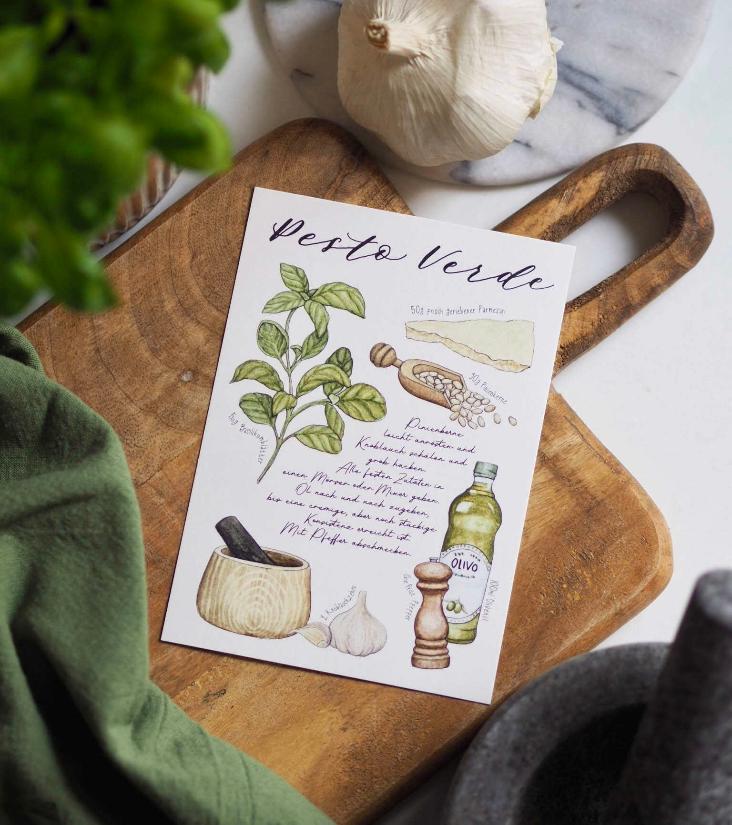 Pesto Verde
50g frisch geriebener Parmesan
30g Pinienkerne
Pinienkerne
leicht anrösten und
Knoblauch schälen und
grob hacken.
Alle festen Zutaten in
einen Mörser oder Mixer geben.
Öl nach und nach zugeben,
bis eine cremige, aber noch stückige
Konsistenz erreicht ist.
Mit Pfeffer abschmecken.
OLIVO
100ml Olivenöl
1 Knoblauchzehe